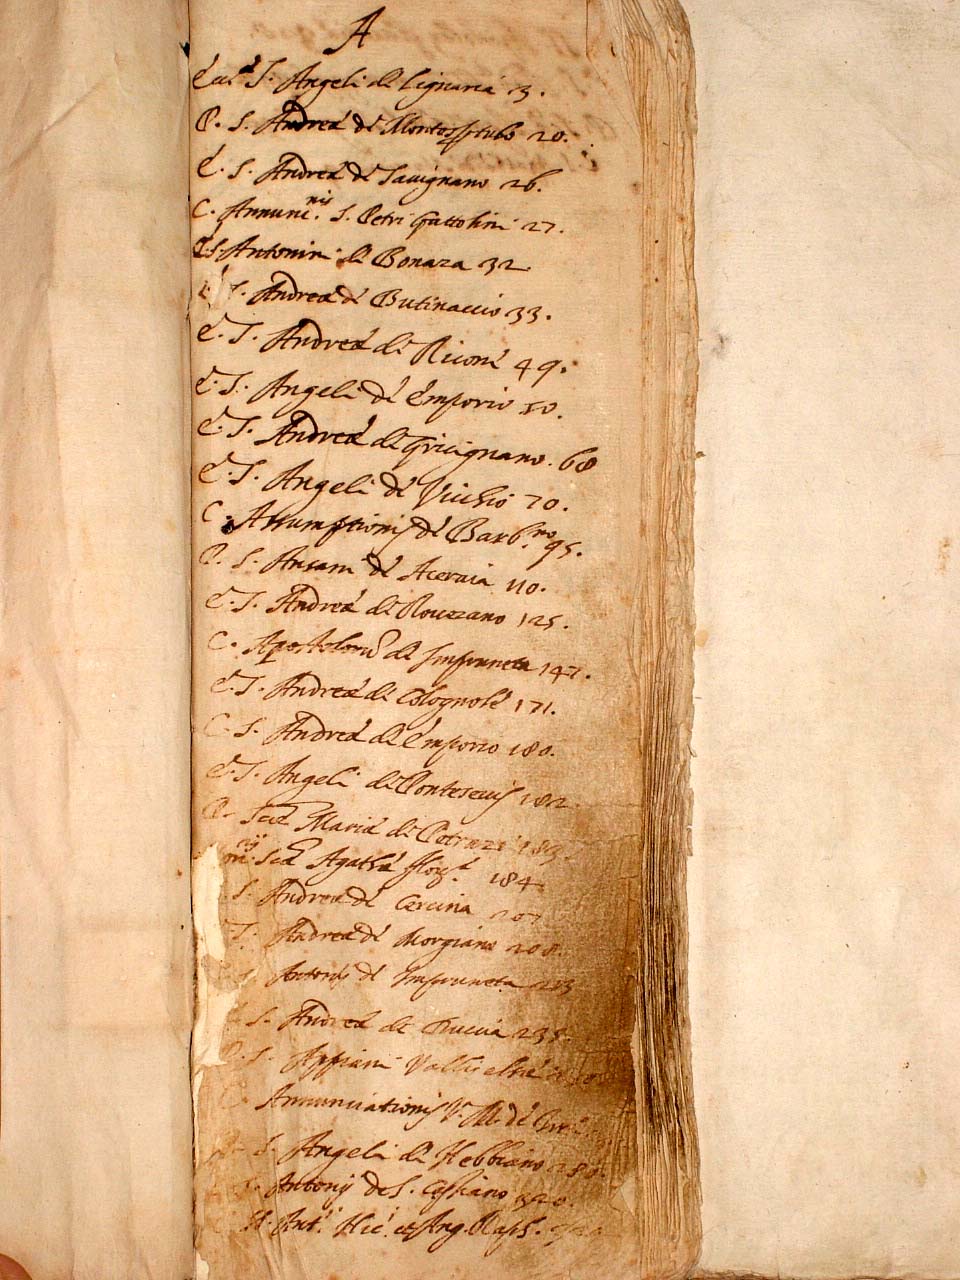 A
S. Angeli de Lignaria 3.
P. S. Andreæ de 20.
E. S. Andreæ de Savignano 26.
C. Annunc.nis S. Petri Gattolini 27.
S. Antonini de Bonaza 32.
S. Andreæ de Butinaccio 33.
E. S. Andreæ de 49.
E. S. Angeli de Emporio 50.
E. S. Andreæ de Gricignano. 68
E. S. Angeli de Vicchio 70.
C. Assumptionis de Barb.no 95.
P. S. Ansani de 110.
E. S. Andreæ de Rovezano 125.
C. Apostolorũ de Impruneta 147.
E. S. Andreæ de Colognole 171.
C. S. Andreæ de Emporio 180.
E. S. Angeli de 182.
P. Mariæ de
Agathæ 184
S. Andreæ de Cercina 207
S. Andreæ de Morgiano 208.
S. Antonij de Impruneta
S. Andreæ de 235.
S. Appiani Vallis
C. Annunciationis V. M. de
S. Angeli de Nebbiano
S. Antonij de S. Cassiano 320.
Ant. Nic. et Ang. Raph.